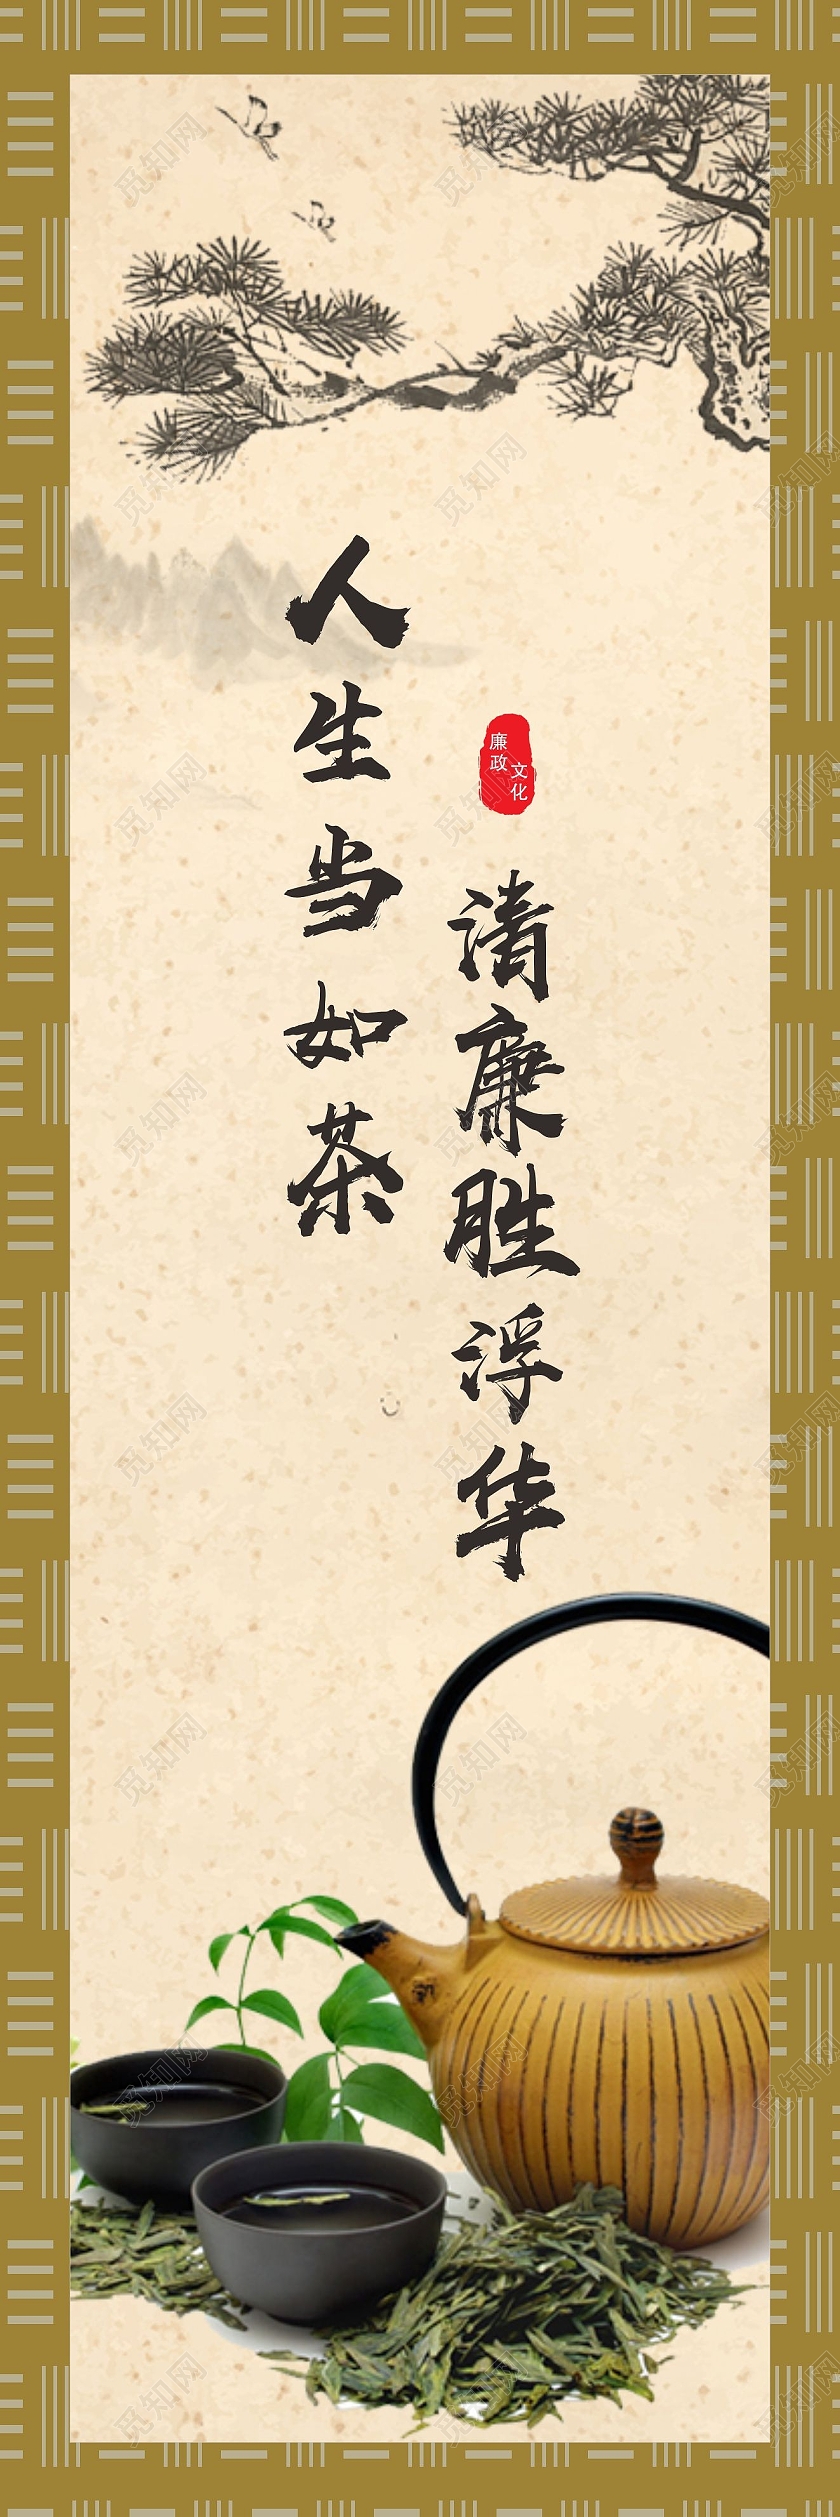 人生当如茶
清廉胜浮华
廉政
文化
觅知网